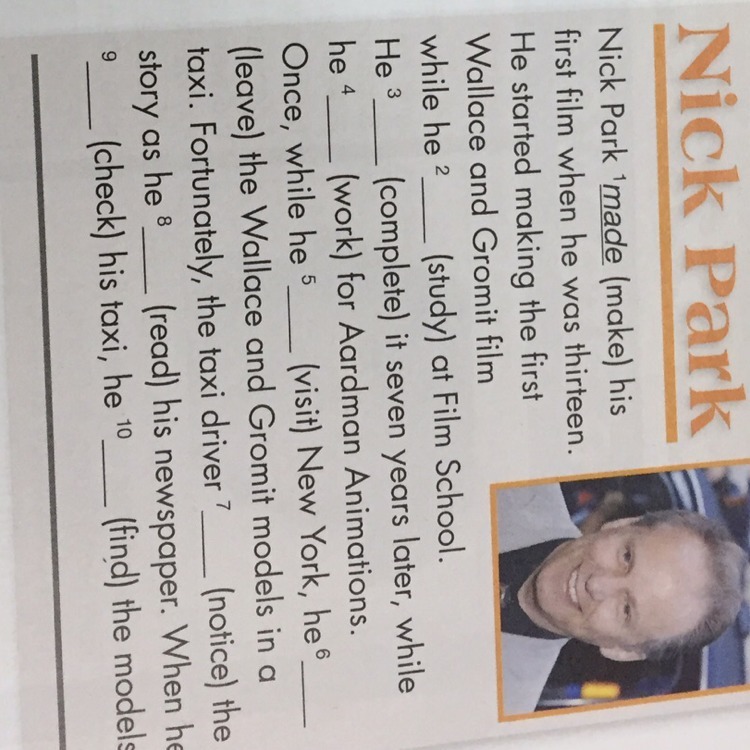 Nick Park
Nick Park ¹made (make) his
first film when he was thirteen.
He started making the first
Wallace and Gromit film
while he ²____ (study) at Film School.
He ³____ (complete) it seven years later, while
he ⁴____ (work) for Aardman Animations.
Once, while he ⁵____ (visit) New York, he ⁶____
(leave) the Wallace and Gromit models in a
taxi. Fortunately, the taxi driver ⁷____ (notice) the
story as he ⁸____ (read) his newspaper. When he
⁹____ (check) his taxi, he ¹⁰____ (find) the models